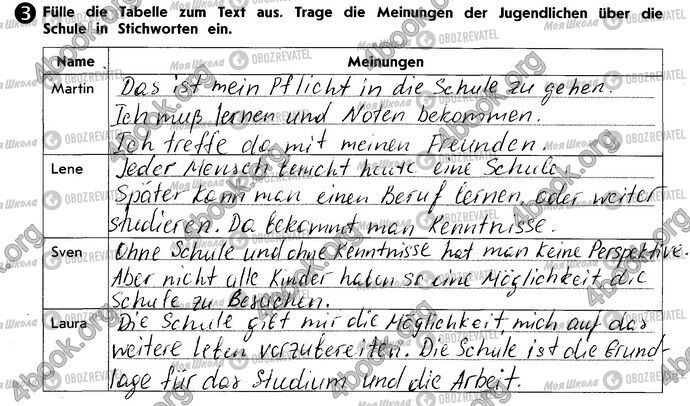 3 Fülle die Tabelle zum Text aus. Trage die Meinungen der Jugendlichen über die
Schule in Stichworten ein.
Name Meinungen
Martin Das ist mein Pflicht in die Schule zu gehen.
Ich muß lernen und Noten bekommen.
Ich treffe da mit meinen Freunden.
Lene Jeder Mensch braucht heute eine Schule.
Später kann man einen Beruf lernen oder weiter
studieren. Da bekommt man Kenntnisse.
Sven Ohne Schule und ohne Kenntnisse hat man keine Perspektive.
Aber nicht alle Kinder haben so eine Möglichkeit die
Schule zu Besuchen.
Laura Die Schule gibt mir die Möglichkeit mich auf das
weitere leben vorzubereiten. Die Schule ist die Grund-
lage für das Studium und die Arbeit.